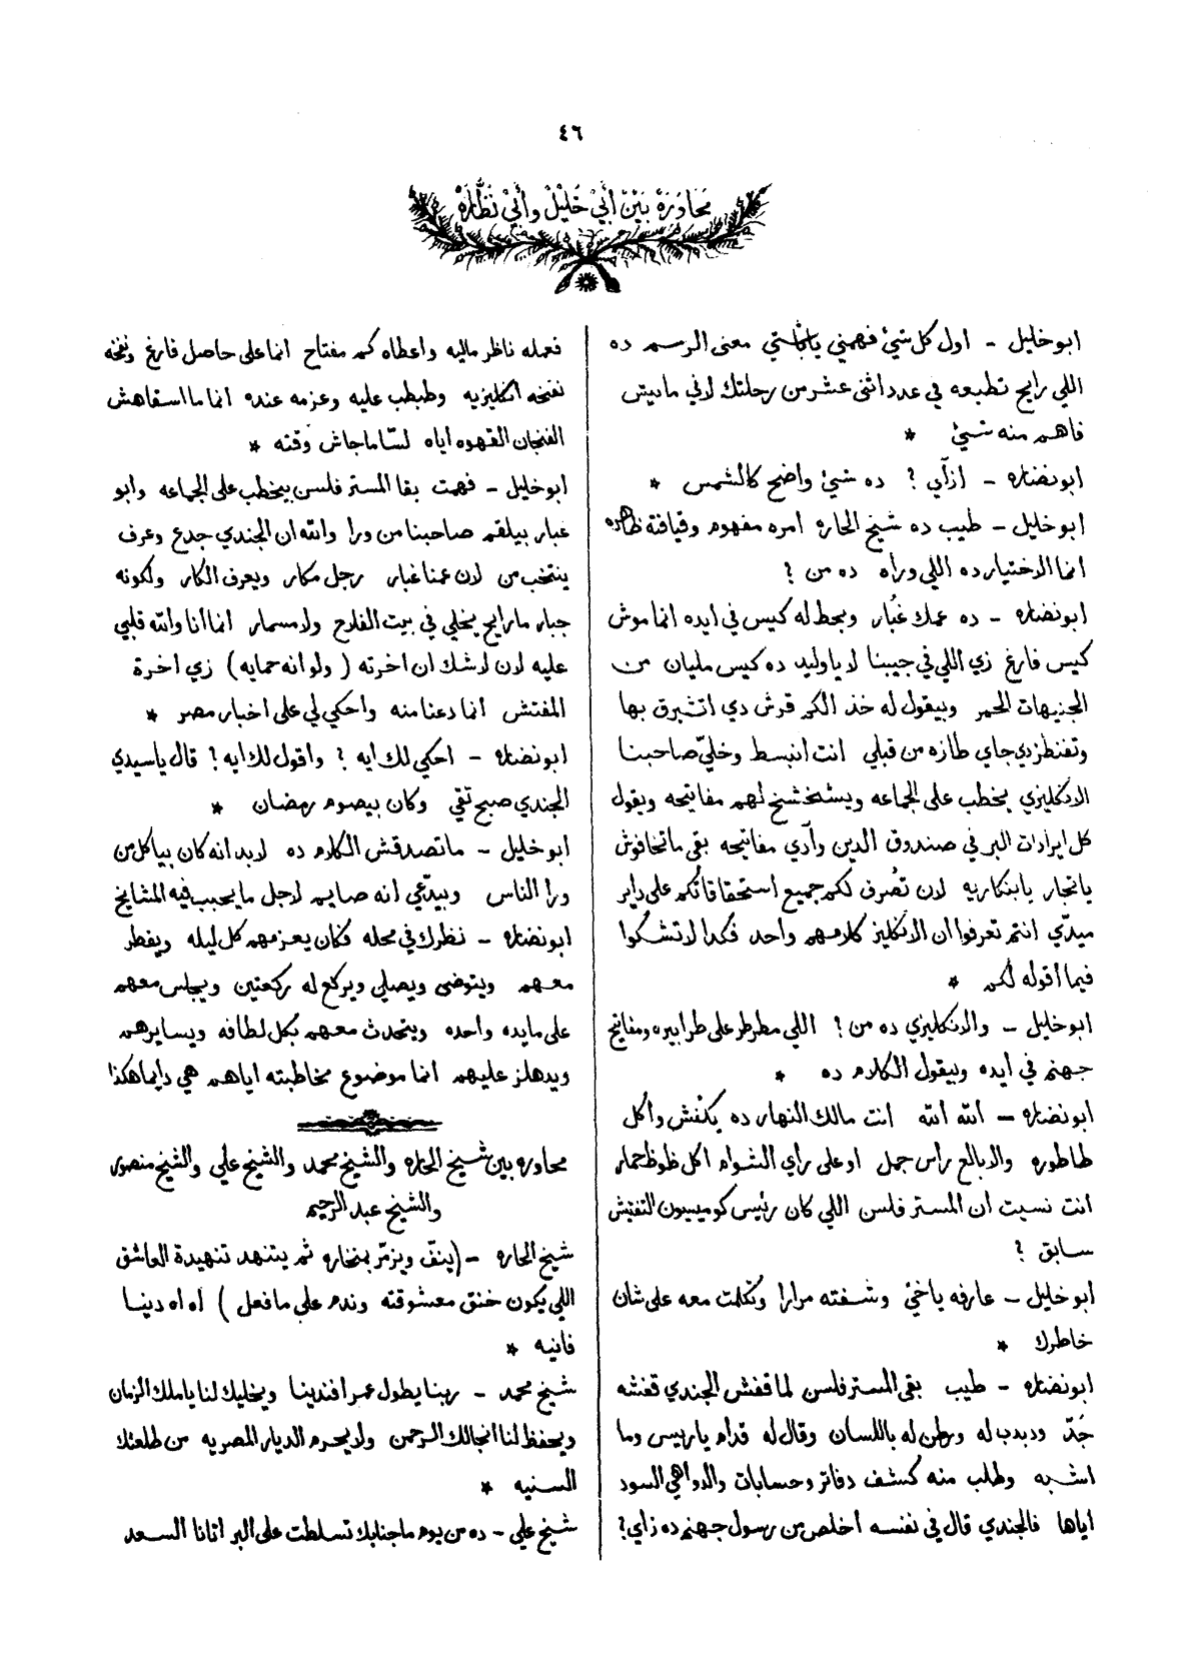 ٤٦
مَحَاوَرَة بَيْنَ أَبِيْ خَلِيْلْ وأَبِيْ نَظَّارَهْ
ابو خليل - اول كل شيئ فهمني يا بتاستي معنى الرسم ده
اللي رايح تطبعه في عدد اثنى عشر من رحلتك لاني مابيتش
فاهم منه شيئ *
ابو نضاره - ازآي ? ده شيئ واضح كالشمس *
ابو خليل - طيب ده شيخ الحاره امره مفهوم وقيافته ظاهره
انما الاختيار ده اللي وراه ده من ?
ابو نضاره - ده عمك غُبار وبيحط له كيس في ايده انما موش
كيس فارغ زي اللي في جيبنا لا ياوليد ده كيس مليان من
الجنيهات الحمر وبيقول له خذ الكم قرش دي اتشبرق بها
وتفنطز دي جاي طازه من قبلي انت انبسط وخليّ صاحبنا
الانكليزي يخطب على الجماعه ويشخشخ لهم مفاتيحه ويقول
كل ايرادات البر في صندوق الدين وآدي مفاتيحه بقى ماتخافوش
ياتجار يابنكاريه لان تُصرف لكم جميع استحقاقاتكم على داير
ميدّي انتم تعرفوا ان الانكليز كلامهم واحد فكدا لا تشكوا
فيما أقوله لكم *
ابو خليل - والانكليزي ده من ? اللي مطرطر على طرابيزه ومفاتيح
جهنم في ايده وبيقول الكلام ده *
ابو نضاره - الله الله انت مالك النهار ده يكْفش واكل
طاطوره والا بالع راس جمل او على راي الشوام اكل ظوظ حمار
انت نسيت أن المستر فلسن اللي كان رئيس كوميسيون التفتيش
سابق ?
ابو خليل - عارفه ياخيّ وشفته مرارا وتكلمت معه على شان
خاطرك *
ابو نضاره - طيب بقى المستر فلسن لما قفش الجندي قفشه
جَدّ ودبدب له ورطن له باللسان وقال له قدام ياريس وما
اشبه وطلب منه كشف دفاتر وحسابات والدواهي السود
اياها فالجندي قال في نفسه اخلص من رسول جهنم ده زاي ?
فعمله ناظر ماليه واعطاه كم مفتاح انما على حاصل فارغ ونفخه
نفخه انكليزيه وطبطب عليه وعزمه عنده انما ما اسقاهش
الفنجان القهوه اياه لسّا ماجاش وقته *
ابو خليل - فهمت بقا المستر فلسن بيخطب على الجماعه وابو
غبار بيلقم صاحبنا من ورا والله ان الجندي جدع وعرف
ينتخب من لان عمنا غبار رجل مكار ويعرف الكار ولكونه
جبار مارايح يخلي في بيت الفلاح ولا مسمار انما انا والله قلبي
عليه لان لاشك ان اخرته ( ولو انه حمايه ) زي اخرة
المفتش انما دعنا منه واحكي لي على اخبار مصر *
ابو نضاره - احكي لك ايه ? واقول لك ايه ? قال ياسيدي
الجندي صبح تقي وكان بيصوم رمضان *
ابو خليل - ماتصدقش الكلام ده لابد انه كان بياكل من
ورا الناس وبيدّعي انه صايم لاجل مايحبب فيه المشايخ
ابو نضاره - نظرك في محله فكان يعزمهم كل ليله ويفطر
معهم ويتوضى ويصلي ويركع له ركعتين ويجلس معهم
على مايده واحده ويتحدث معهم بكل لطافه ويسايرهم
ويدهلز عليهم انما موضوع مخاطبته اياهم هي دايما هكذا
محاوره بين شيخ الحاره والشيخ محمد والشيخ علي والشيخ منصور
والشيخ عبد الرحيم
شيخ الحاره - (ينفّ ويزمّر بمنخاره ثم يتنهد تنهيدة العاشق
اللي يكون خنق معشوقته وندم على ما فعل ) اه اه دنيا
فانيه *
شيخ محمد - ربنا يطول عمر افندينا ويخليك لنا ياملك الزمان
ويحفظ لنا انجالك الرحمن ولا يحرم الديار المصريه من طلعتك
السنيه *
شيخ علي - ده من يوم ما جنابك تسلطت على البر اتانا السعد